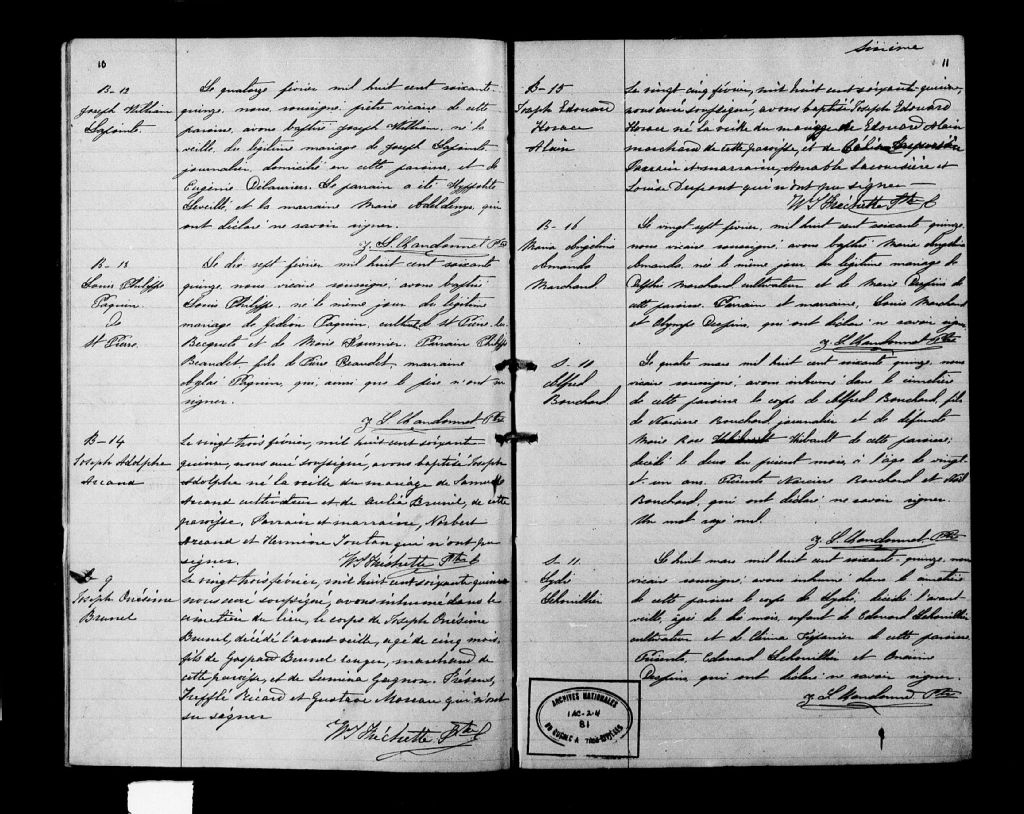 10
B-12
Joseph William
Lapointe
Le quatorze février mil huit cent soixante
quinze, nous, soussigné, prêtre vicaire de cette
paroisse, avons baptisé Joseph William, né la
veille, du légitime mariage de Joseph Lapointe
journalier, domicilié en cette paroisse, et de
Eugénie Délauriers. Le parrain a été Hyppolite
Leveillé, et la marraine Marie qui
ont déclaré ne savoir signer.
J. L. Mandonnet Ptre
B-13
Louis Philippe
Paquin
de
St Pierre
Le dix sept février mil huit cent soixante
quinze, nous vicaire soussigné, avons baptisé
Louis Philippe, né le même jour du légitime
mariage de Gédéon Paquin, cultivr de St Pierre les
Becquets et de Marie Parrain Philippe
Beaudet fils de Pierre Beaudet, marraine
Aglaé Paquin, qui, ainsi que le père n'ont su
signer.
J. L. Mandonnet Ptre
B-14
Joseph Adolphe
Arcand
Le vingt trois février, mil huit cent soixante
quinze, nous curé soussigné, avons baptisé Joseph
Adolphe né la veille du mariage de Samuel
Arcand cultivateur et de Aurélie Brunel, de cette
paroisse. Parrain et marraine, Norbert
Arcand et Hermine Toutan qui n'ont pu
signer.
W J Fréchette Ptre C
S 9
Joseph Onésime
Brunel
Le vingt trois février, mil huit cent soixante quinze
nous curé soussigné, avons inhumé dans le
cimetière du lieu, le corps de Joseph Onésime
Brunel, décédé l'avant veille, agé de cinq mois,
fils de Gaspard Brunel marchand de
cette paroisse, et de Lumina Gagnon. Présens,
Trefflé Ricard et Gustave Moreau qui n'ont
su signer
W J Fréchette Ptre C
sixième
11
B-15
Joseph Edouard
Horace
Alain
Le vingt cinq février, mil huit cent soixante quinze,
nous curé soussigné, avons baptisé Joseph Edouard
Horace né la veille du mariage de Edouard Alain
marchand de cette paroisse, et de Célina
Parrain et marraine, Amable Lacoursière et
Louise Dupont qui n'ont pu signer
W J Fréchette Ptre C
B-16
Maria Angélina
Amanda
Marchand
Le vingt sept février, mil huit cent soixante quinze,
nous vicaire soussigné, avons baptisé Maria Angélina
Amanda, née le même jour du légitime mariage de
Delphis Marchand cultivateur et de Marie Despins de
cette paroisse. Parrain et marraine, Louis Marchand
et Olympe Despins, qui ont déclaré ne savoir signer
J. L. Mandonnet Ptre
S-10
Alfred
Bouchard
Le quatre mars mil huit cent soixante quinze, nous
vicaire soussigné, avons inhumé dans le cimetière
de cette paroisse le corps de Alfred Bouchard, fils
de Narcisse Bouchard, journalier et de défunte
Marie Rose Thibault de cette paroisse;
décédé le deux du présent mois, à l'âge de vingt
et un ans. Présents Narcisse Bouchard et
Bouchard, qui ont déclaré ne savoir signer
Un mot rayé nul.
J. L. Mandonnet Ptre
S-11
Lydie
Lehouillier
Le huit mars mil huit cent soixante-quinze, nous
vicaire soussigné, avons inhumé dans le cimetière
de cette paroisse le corps de Lydie, décédée l'avant
veille, âgée de dix mois, enfant de Edouard Lehouillier
cultivateur et de de cette paroisse.
Présents, Edouard Lehouillier et Onésime
Despins, qui ont déclaré ne savoir signer.
J. L. Mandonnet Ptre
ARCHIVES NATIONALES
1 AC-2-4
81
DU QUÉBEC A TROIS-RIVIÈRES